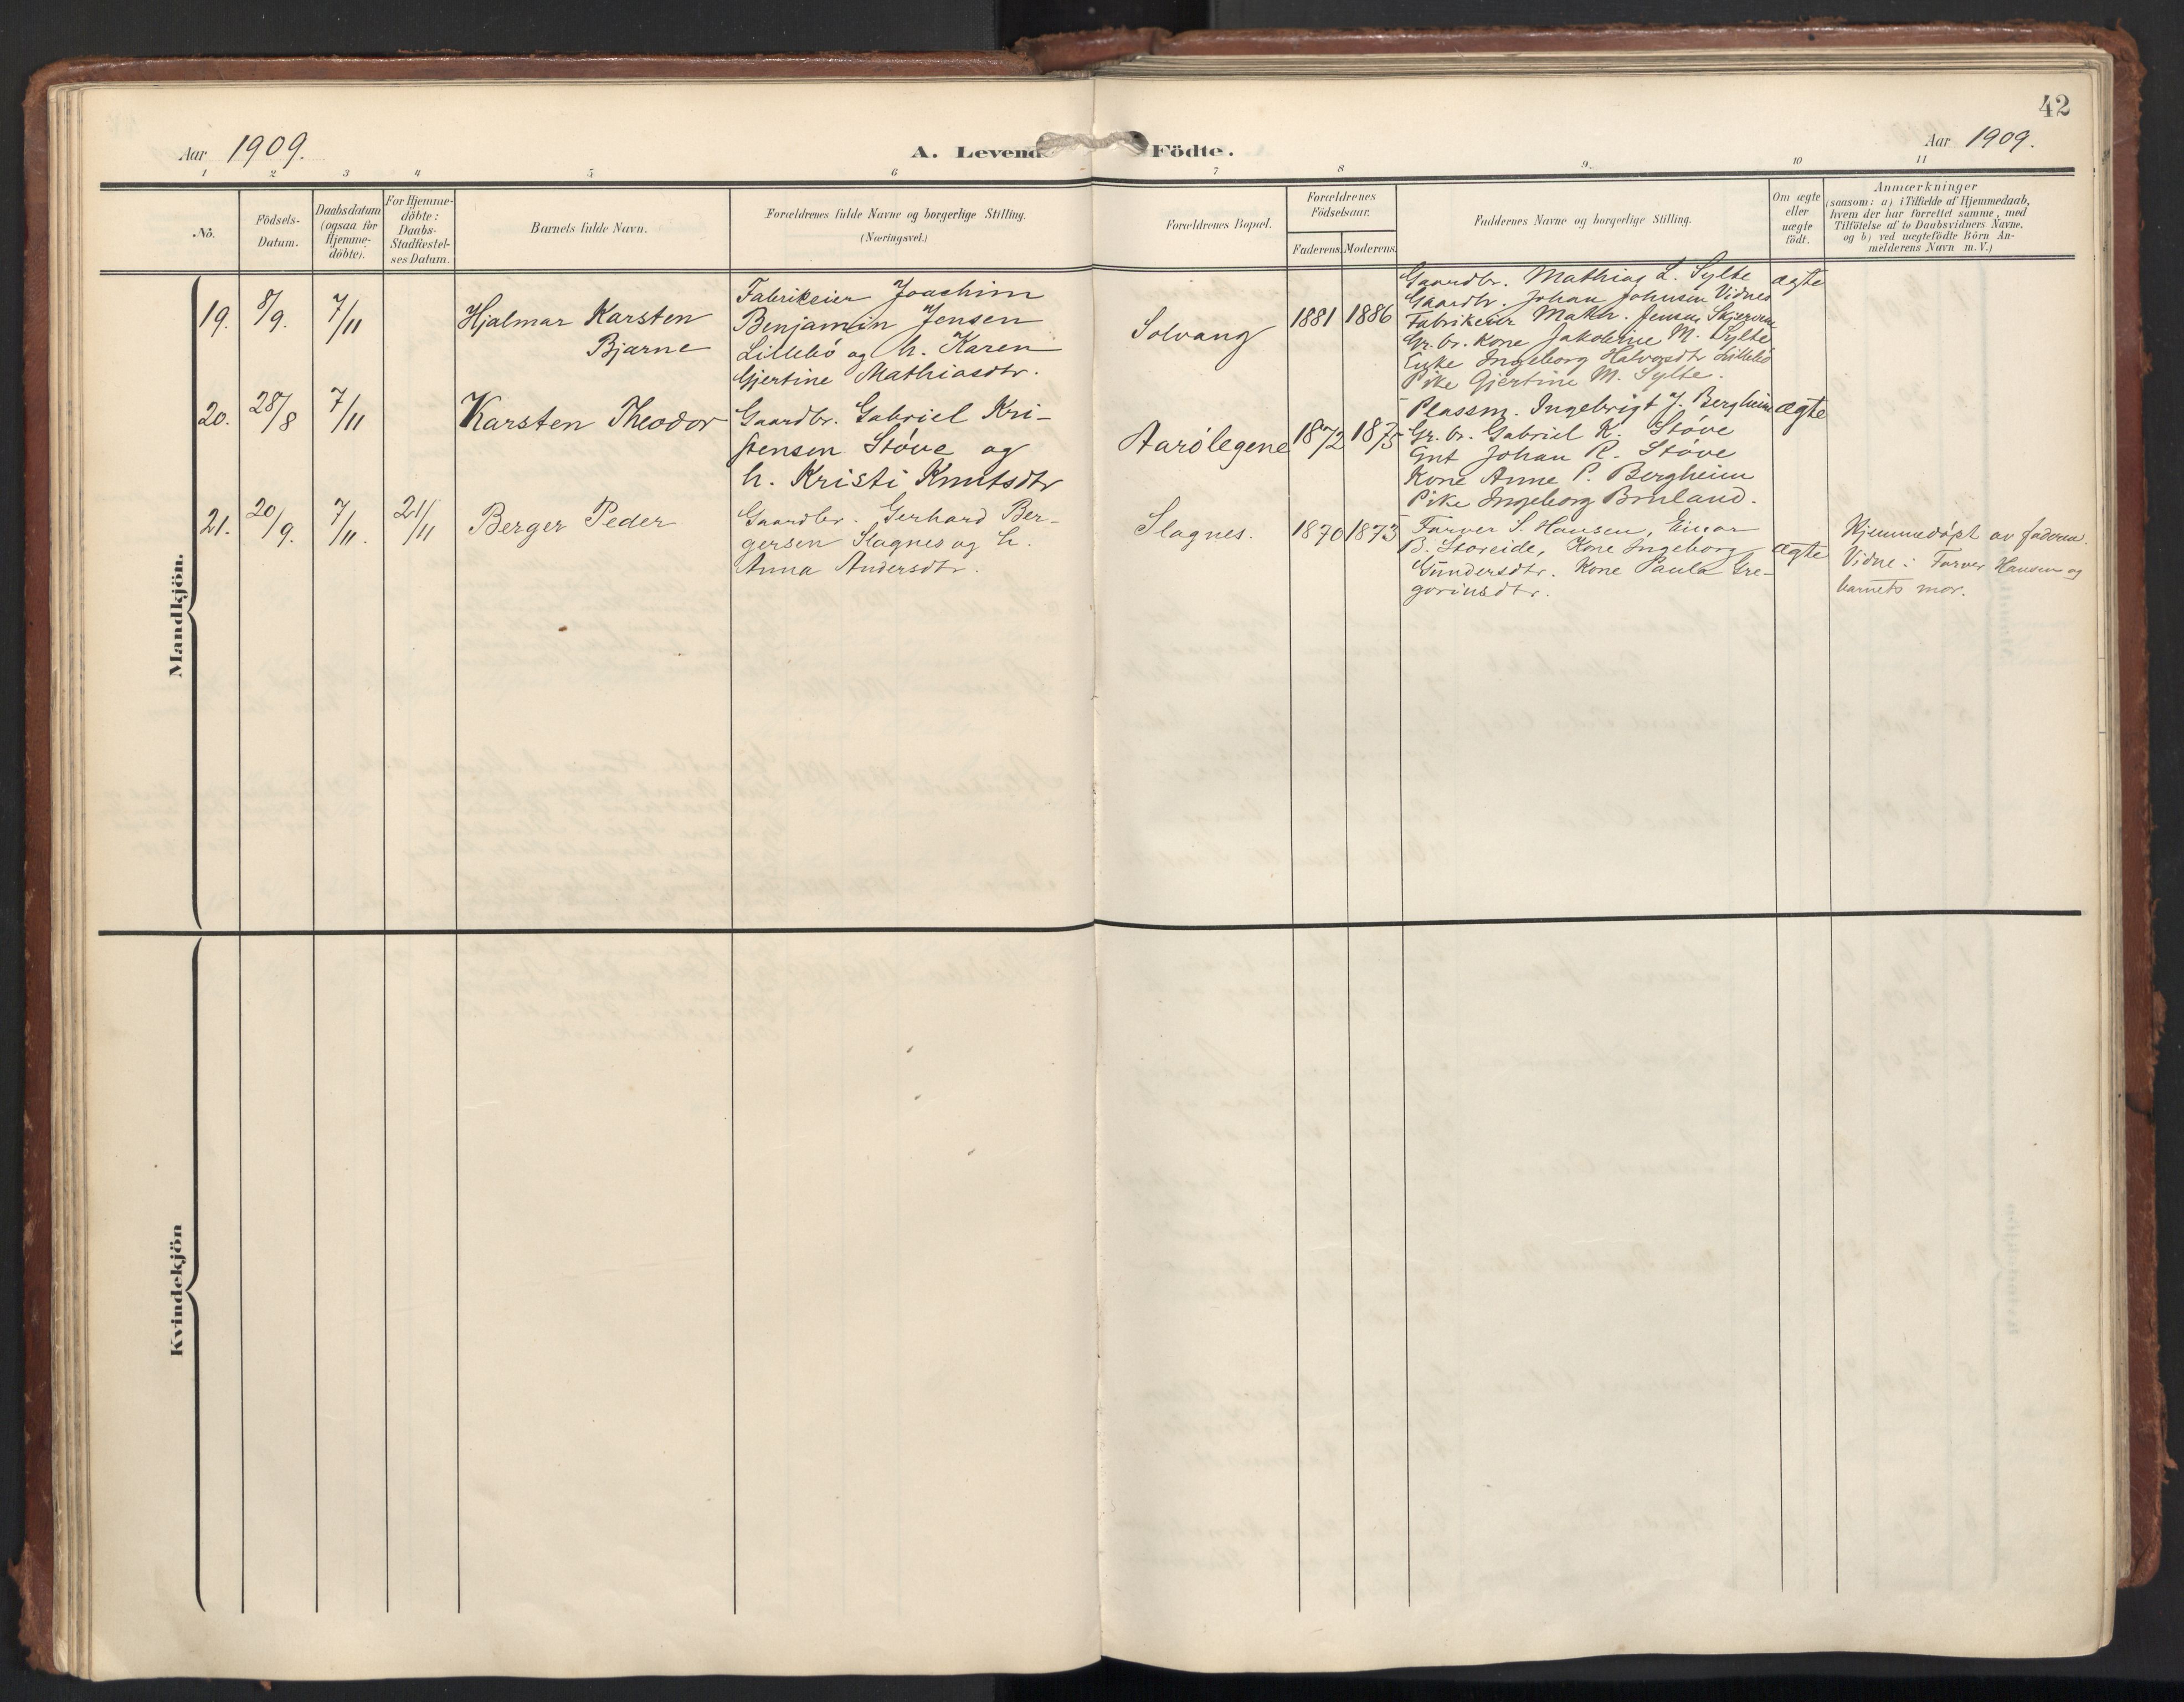 42
Aar 1909.
A. Levende Födte.
Aar 1909.
1 2 3 4 5 6 7 8 9. 10 11
No.
Födsels-
Datum.
Daabsdatum
(ogsaa for
Hjemme-
döbte).
For Hjemme-
döbte:
Daabs-
Stadfæstel-
ses Datum.
Barnets fulde Navn.
Forældrenes fulde Navne og borgerlige Stilling.
(Næringsvei.)
Forældrenes Bopæl.
Forældrenes
Födselsaar.
Faderens. Moderens.
Faddernes Navne og borgerlige Stilling.
Om ægte
eller
uægte
födt.
Anmærkninger
(saasom: a) i Tilfælde af Hjemmedaab,
hvem der har forrettet samme, med
Tilföielse af to Daabsvidners Navne.
og b) ved uægtefödte Börn An-
melderens Navn m.V.)
Mandkjön.
19. 8/9. 7/11
Hjalmar Karsten
Bjarne
Fabrikeier Joachim
Benjamin Jensen
Lillebö og h. Karen
Gjertine Mathiasdtr.
Solvang
1881 1886
Gaardbr. Mathias L. Sylte
Gaardbr. Johan Johnsen Vidnes
Fabrikeier Math. Jensen
Gr. br. kone Jakobine M. Sylte
Enke Ingeborg Halvorsdtr Lillebö
Pike Gjertine M. Sylte.
ægte
20. 28/8 7/11
Karsten Theodor
Gaardbr. Gabriel Kri-
stensen Stöve og
h. Kristi Knutsdtr
Aarölegene
1872 1875
Plassm. Ingebrigt J. Bergheim
Gr. br. Gabriel K. Stöve
Gut Johan K. Stöve
Kone Anne P. Bergheim
Pike Ingeborg Bruland.
ægte
21. 20/9. 7/11. 21/11
Berger Peder
Gaardbr. Gerhard Ber-
gersen Slagnes og h.
Anna Andersdtr.
Slagnes.
1870 1873
Farver S. Hansen, Einar
B. Storeide, Kone Ingeborg
Gundersdtr. Kone Paula Gre-
goriusdtr.
ægte
Hjemmedöpt av faderen.
Vidne: Farver Hansen og
barnets mor.
Kvindekjön